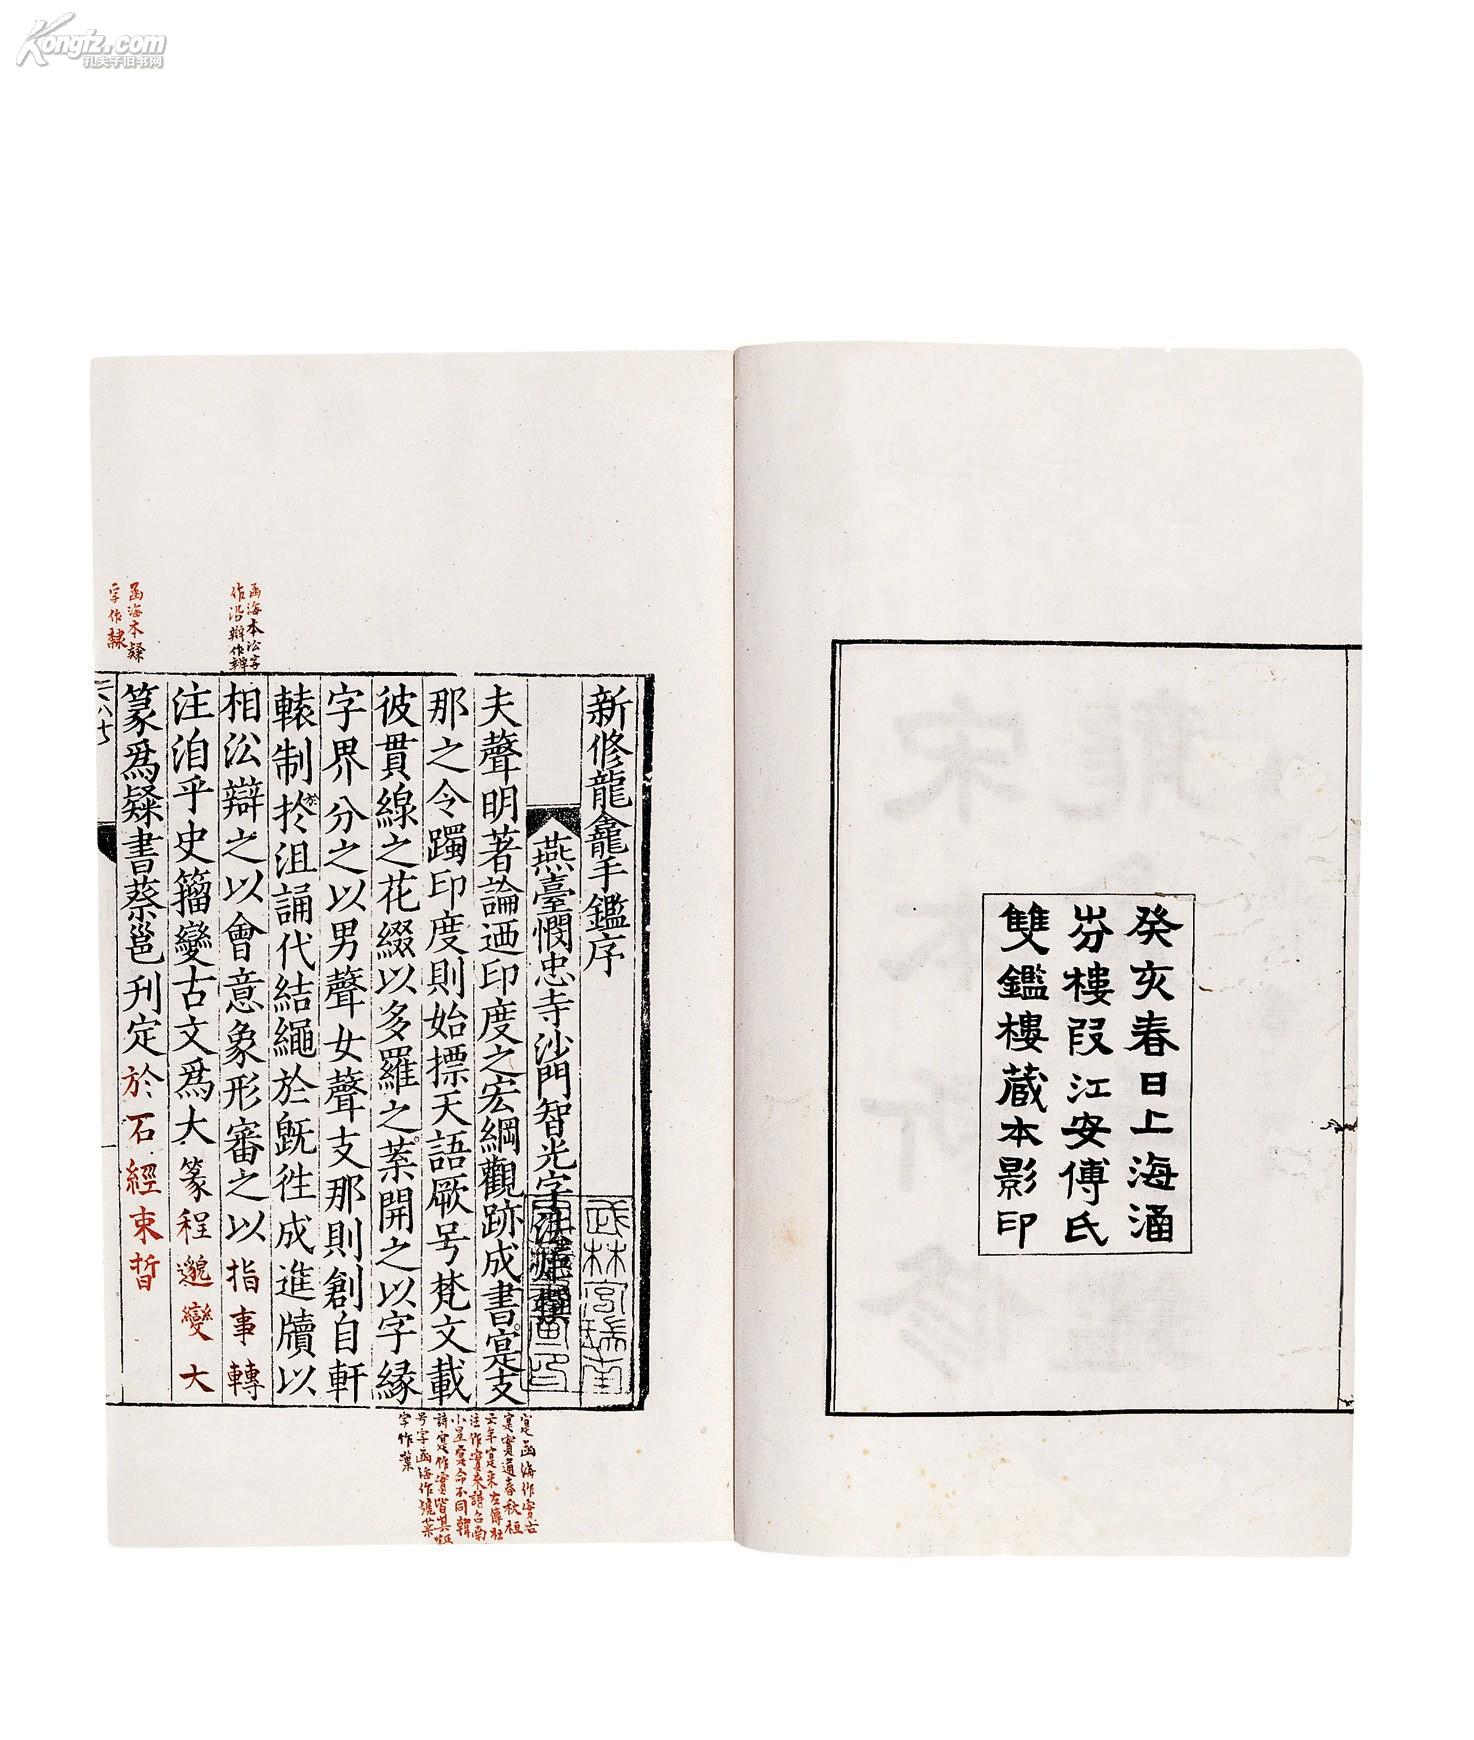 Kongfz.com
孔夫子旧书网
癸亥春日上海涵
芬樓叚江安傅氏
雙鑑樓藏本影印
新修龍龕手鑑序
燕臺憫忠寺沙門智光字法炬撰
夫聲明著論迺印度之宏綱觀跡成書寔支
那之令躅印度則始摽天語厥号梵文載
彼貫線之花綴以多羅之葉開之以字緣
字界分之以男聲女聲支那則創自軒
轅制於沮誦代結繩於旣徃成進牘以
相㳂辯之以會意象形審之以指事轉
注洎乎史籀變古文爲大篆程邈變大
篆爲隸書蔡邕刊定於石經束晳
函海本㳂字
作沿辯作辨
函海本隸
字作隸
寔函海作實古
寔實通春秋桓
六年寔來左傳杜
注作實來詩召南
小星寔命不同韓
詩寔作實
号字函海作號葉
字作葉